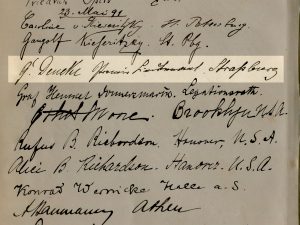 23. Mai 91
Caroline v Kieseritzky St. Petersburg
Gangolf Kieseritzky, St. Pbg.
Premier Lieutenant Strassburg
Graf Henckel Donnersmarck, Legationsrath
Moore, Brooklyn U.S.A.
Rufus B. Richardson, Hanover, U.S.A.
Alice B. Richardson, Hanover, U.S.A.
Konrad Wernicke Halle a. S.
Athen